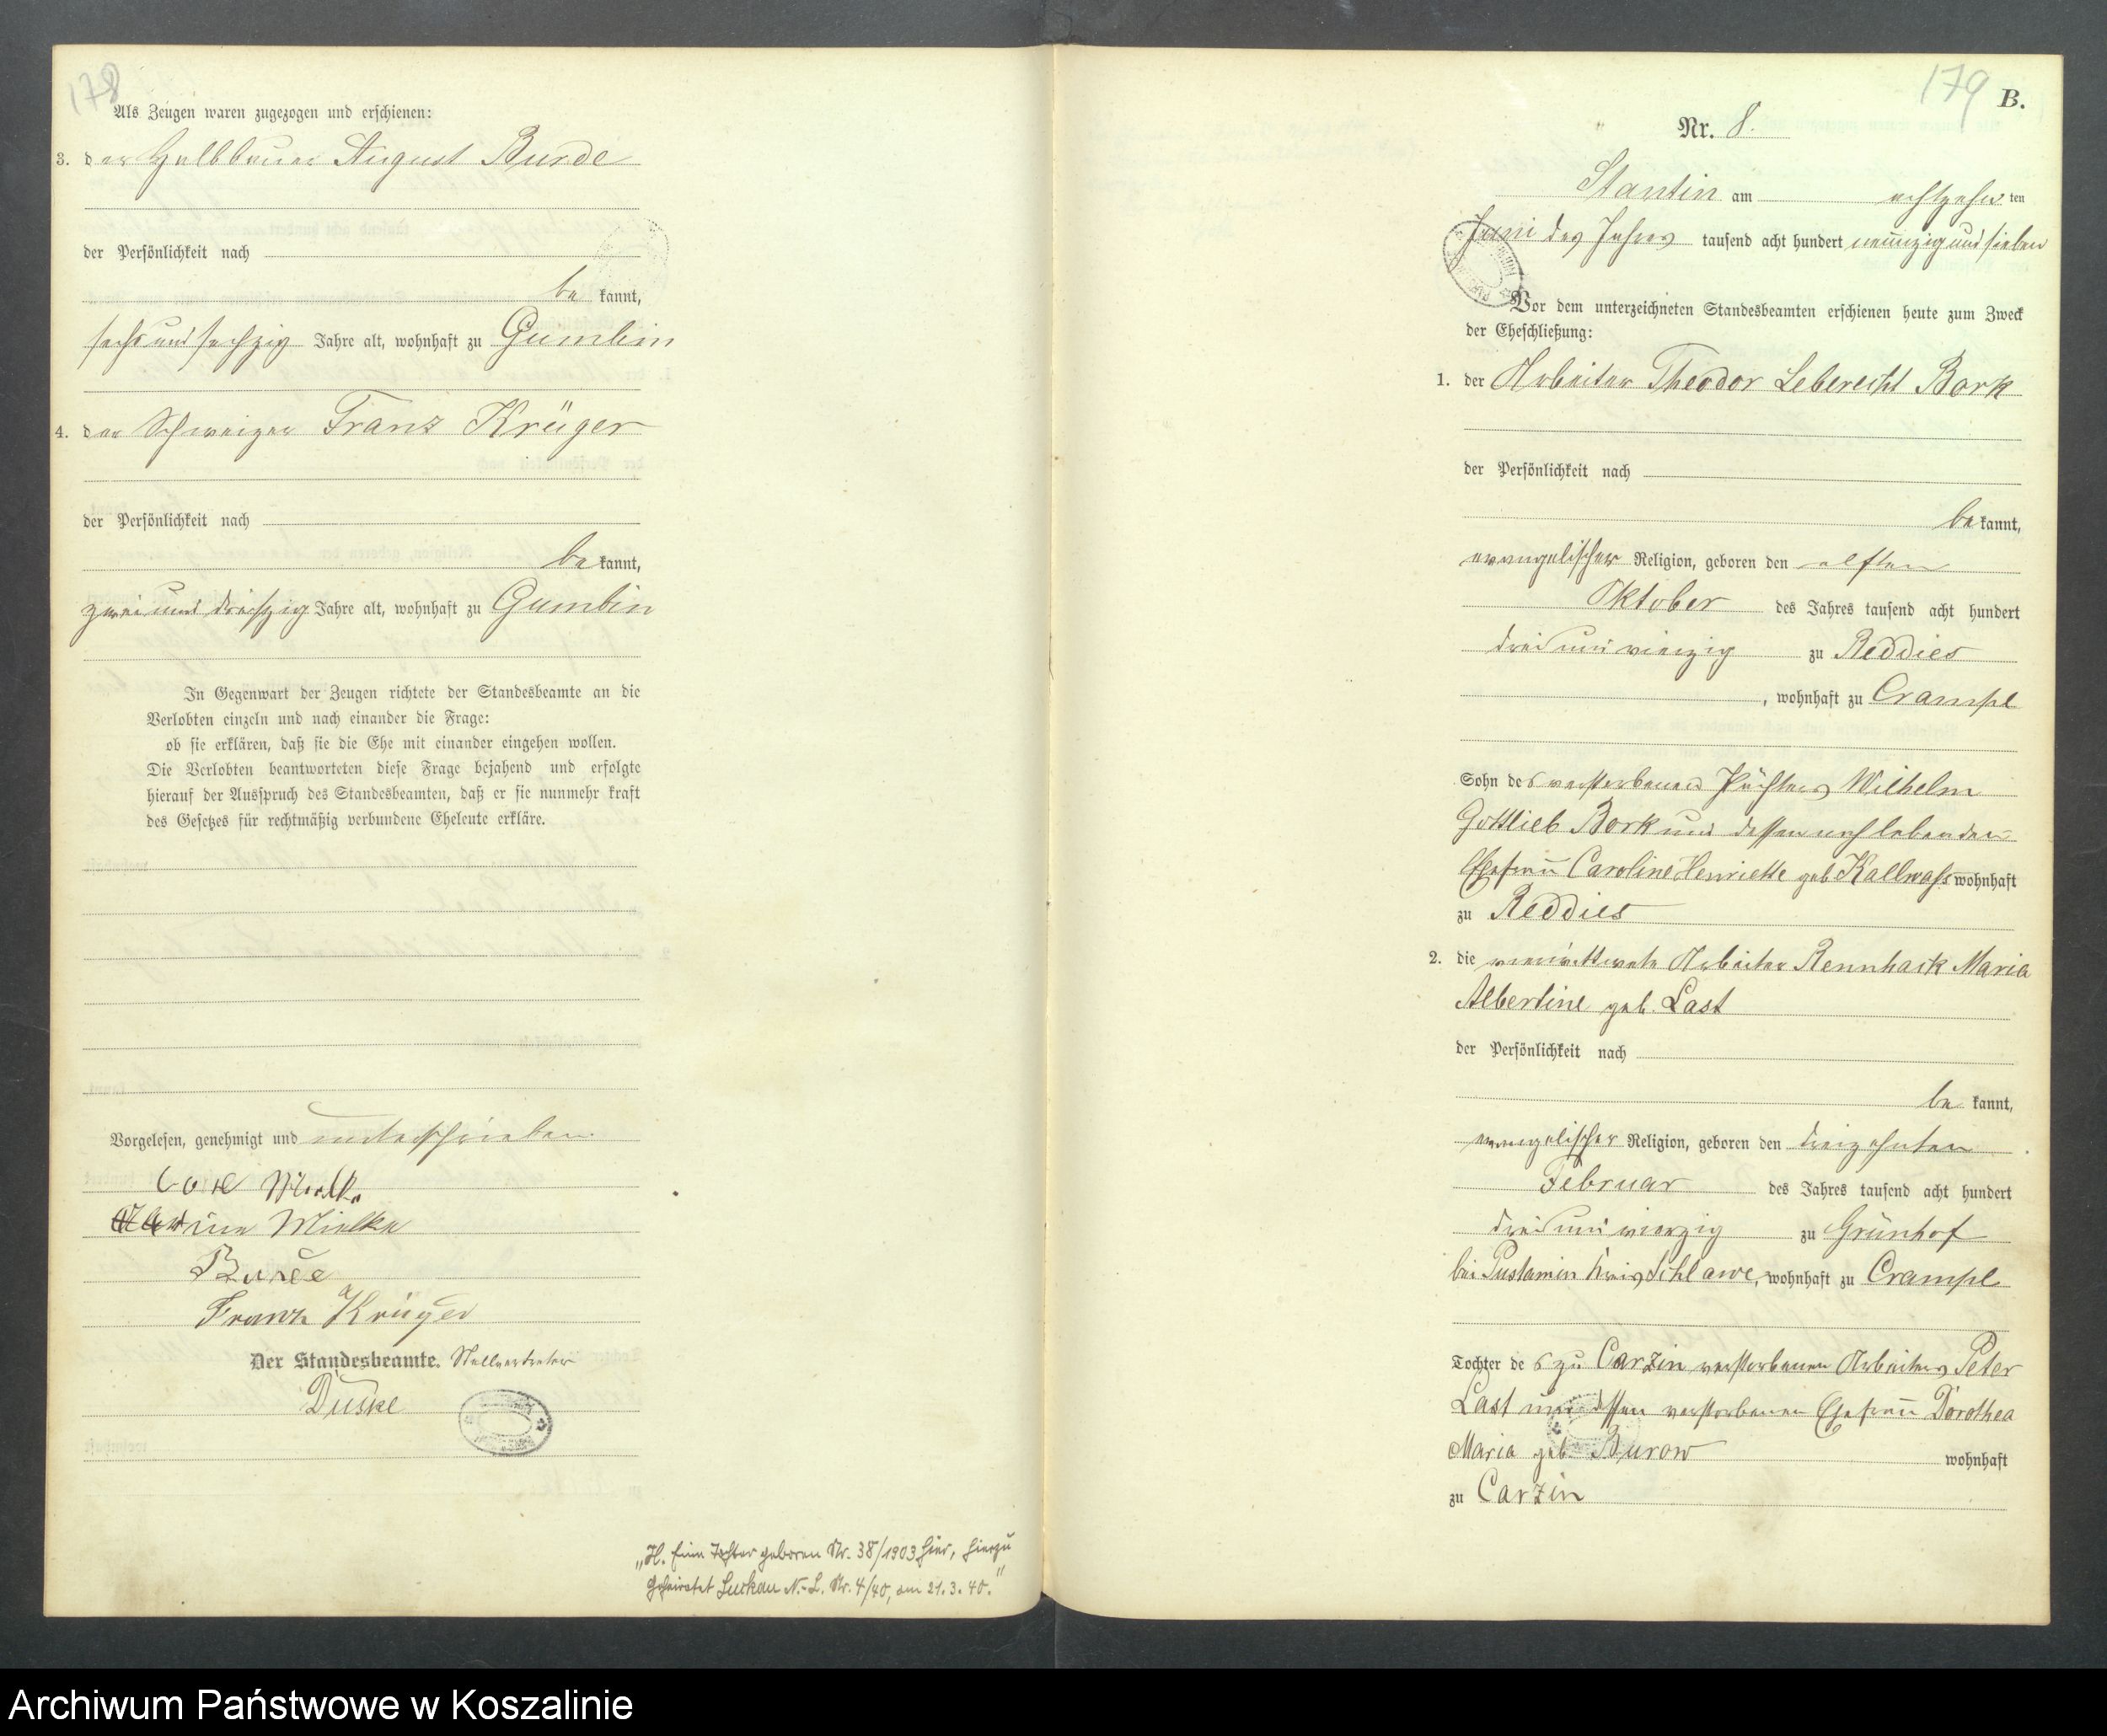 178
Als Zeugen waren zugezogen und erschienen:
3. der Halbbauer August Burde
der Persönlichkeit nach
be kannt,
sechs und sechzig Jahre alt, wohnhaft zu Gumbin
4. der Schweizer Franz Krüger
der Persönlichkeit nach
be kannt,
zwei und dreißig Jahre alt, wohnhaft zu Gumbin
In Gegenwart der Zeugen richtete der Standesbeamte an die
Verlobten einzeln und nach einander die Frage:
ob sie erklären, daß sie die Ehe mit einander eingehen wollen.
Die Verlobten beantworteten diese Frage bejahend und erfolgte
hierauf der Ausspruch des Standesbeamten, daß er sie nunmehr kraft
des Gesetzes für rechtmäßig verbundene Eheleute erkläre.
Vorgelesen, genehmigt und unterschrieben
Mielke
Mielke
Burde
Franz Krüger
Der Standesbeamte. Stellvertreter
Duske
„H. Eine Tochter geboren Nr. 38/1903 hier, hierzu
Geheiratet Luckau N.-L. Nr. 4/40, am 21.3.40."
179
B.
Nr. 8.
Stantin am achtzehn ten
Juni des Jahres tausend acht hundert neunzig und sieben
Vor dem unterzeichneten Standesbeamten erschienen heute zum Zweck
der Eheschließung:
1. der Arbeiter Theodor Leberecht Bork
der Persönlichkeit nach
be kannt,
evangelischer Religion, geboren den elften
Oktober des Jahres tausend acht hundert
drei und vierzig zu Reddies
, wohnhaft zu Crampe
Sohn des verstorbenen Pächters Wilhelm
Gottlieb Bork und dessen noch lebenden
Ehefrau Caroline Henriette geb. Kallwaß wohnhaft
zu Reddies
2. die verwittwete Arbeiter Rennhack Maria
Albertine geb. Last
der Persönlichkeit nach
be kannt,
evangelischer Religion, geboren den dreizehnten
Februar des Jahres tausend acht hundert
drei und vierzig zu Grünhof
bei Pustamin Kreis Schlawe, wohnhaft zu Crampe
Tochter des zu Carzin verstorbenen Arbeiters Peter
Last und dessen verstorbenen Ehefrau Dorothea
Maria geb. Burow wohnhaft
zu Carzin
Archiwum Państwowe w Koszalinie